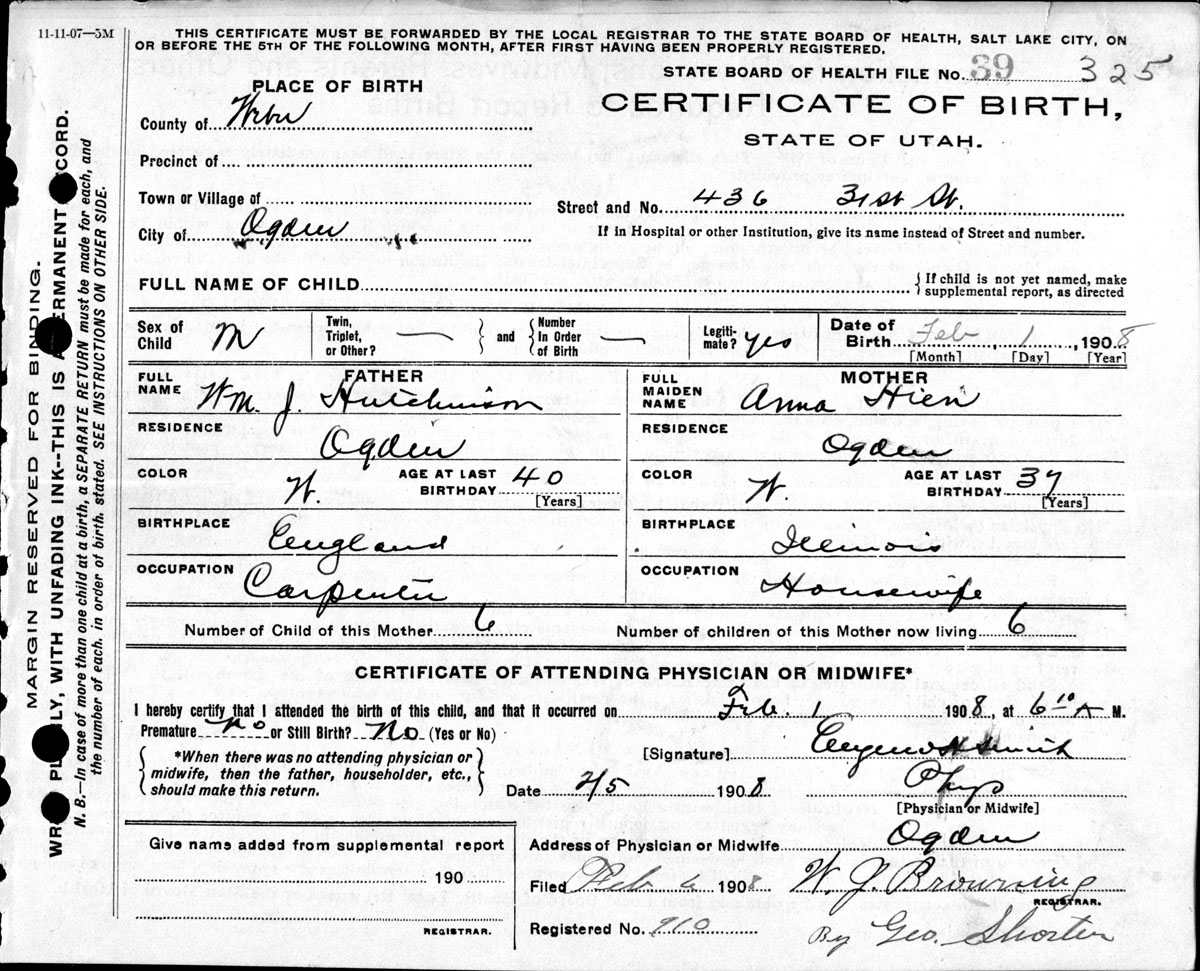 11-11-07—5M
THIS CERTIFICATE MUST BE FORWARDED BY THE LOCAL REGISTRAR TO THE STATE BOARD OF HEALTH, SALT LAKE CITY, ON
OR BEFORE THE 5TH OF THE FOLLOWING MONTH, AFTER FIRST HAVING BEEN PROPERLY REGISTERED.
STATE BOARD OF HEALTH FILE No. 39 325
PLACE OF BIRTH
CERTIFICATE OF BIRTH,
STATE OF UTAH.
County of Weber
Precinct of
Town or Village of
Street and No. 436 31st St.
City of Ogden
If in Hospital or other Institution, give its name instead of Street and number.
FULL NAME OF CHILD
{ If child is not yet named, make
supplemental report, as directed
Sex of Child M
Twin, Triplet, or Other? —
and
Number In Order of Birth —
Legiti-mate? yes
Date of Birth Feb 1, 1908
[Month] [Day] [Year]
FATHER
FULL NAME Wm. J. Hutchinson
RESIDENCE Ogden
COLOR W. AGE AT LAST BIRTHDAY 40 [Years]
BIRTHPLACE England
OCCUPATION Carpenter
MOTHER
FULL MAIDEN NAME Anna Hien
RESIDENCE Ogden
COLOR W. AGE AT LAST BIRTHDAY 37 [Years]
BIRTHPLACE Illinois
OCCUPATION Housewife
Number of Child of this Mother 6 Number of children of this Mother now living 6
CERTIFICATE OF ATTENDING PHYSICIAN OR MIDWIFE*
I hereby certify that I attended the birth of this child, and that it occurred on Feb. 1 1908, at 6 10 A M.
Premature No or Still Birth? No (Yes or No)
*When there was no attending physician or
midwife, then the father, householder, etc.,
should make this return.
[Signature] Eugene H Smith
Date 2/5 1908 Phys
[Physician or Midwife]
Give name added from supplemental report
190
REGISTRAR.
Address of Physician or Midwife Ogden
Filed Feb 6 1908 W. J. Browning
REGISTRAR.
Registered No. 910 By Geo. Shorten
MARGIN RESERVED FOR BINDING.
PLAINLY, WITH UNFADING INK--THIS IS A PERMANENT RECORD.
N. B.—In case of more than one child at a birth, a SEPARATE RETURN must be made for each, and
the number of each, in order of birth, stated. SEE INSTRUCTIONS ON OTHER SIDE.